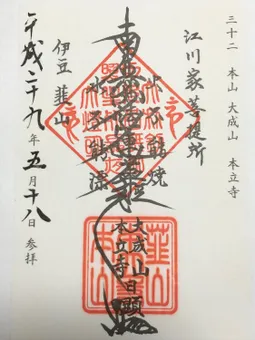 三十二 本山 大成山 本立寺
江川家菩提所
火不能焼
南無妙法蓮華経
水不能漂
大成山
本立寺
日顕
伊豆 韮山
平成二十九年五月十八日 参拝